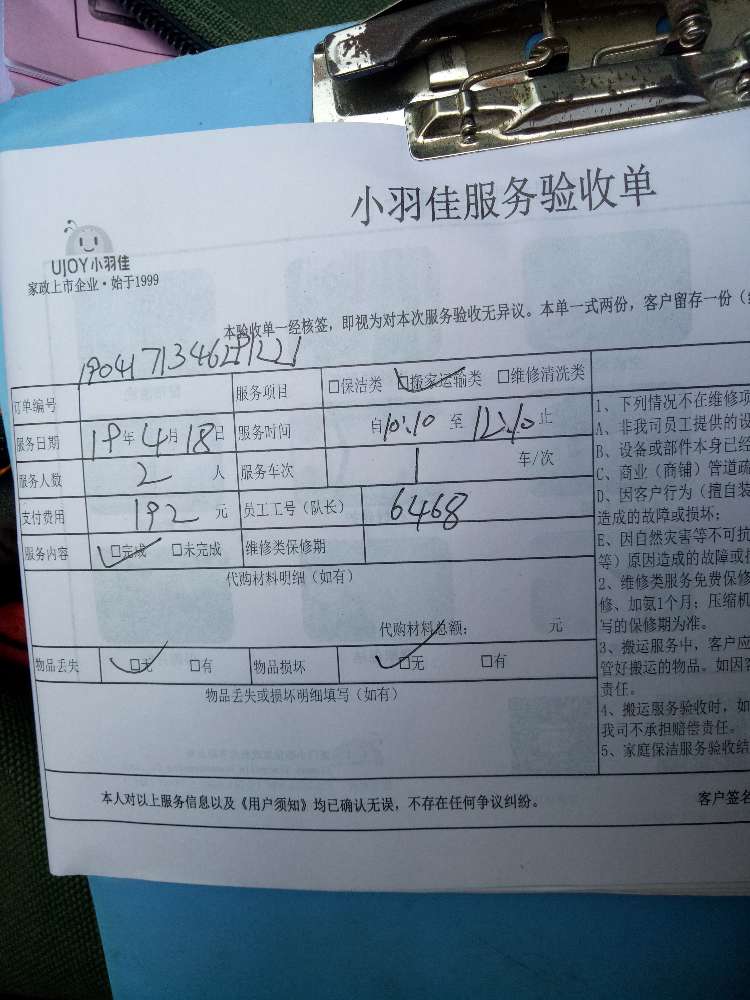 小羽佳服务验收单
UJOY小羽佳
家政上市企业·始于1999
本验收单一经核签，即视为对本次服务验收无异议。本单一式两份，客户留存一份（
订单编号
服务项目 □保洁类 □搬家运输类 □维修清洗类
服务日期 19年4月18日 服务时间 自10:10 至 12:10 止
服务人数 2 人 服务车次 1 车/次
支付费用 192 元 员工工号（队长） 6468
服务内容 □完成 □未完成 维修类保修期
代购材料明细（如有）
代购材料总额： 元
物品丢失 □无 □有 物品损坏 □无 □有
物品丢失或损坏明细填写（如有）
1、下列情况不在维修项
A、非我司员工提供的设
B、设备或部件本身已经
C、商业（商铺）管道疏
D、因客户行为（擅自装
造成的故障或损坏；
E、因自然灾害等不可抗
等）原因造成的故障或
2、维修类服务免费保修
修、加氨1个月；压缩机
写的保修期为准。
3、搬运服务中，客户应
管好搬运的物品。如因
责任。
4、搬运服务验收时，如
我司不承担赔偿责任。
5、家庭保洁服务验收结
本人对以上服务信息以及《用户须知》均已确认无误，不存在任何争议纠纷。 客户签名